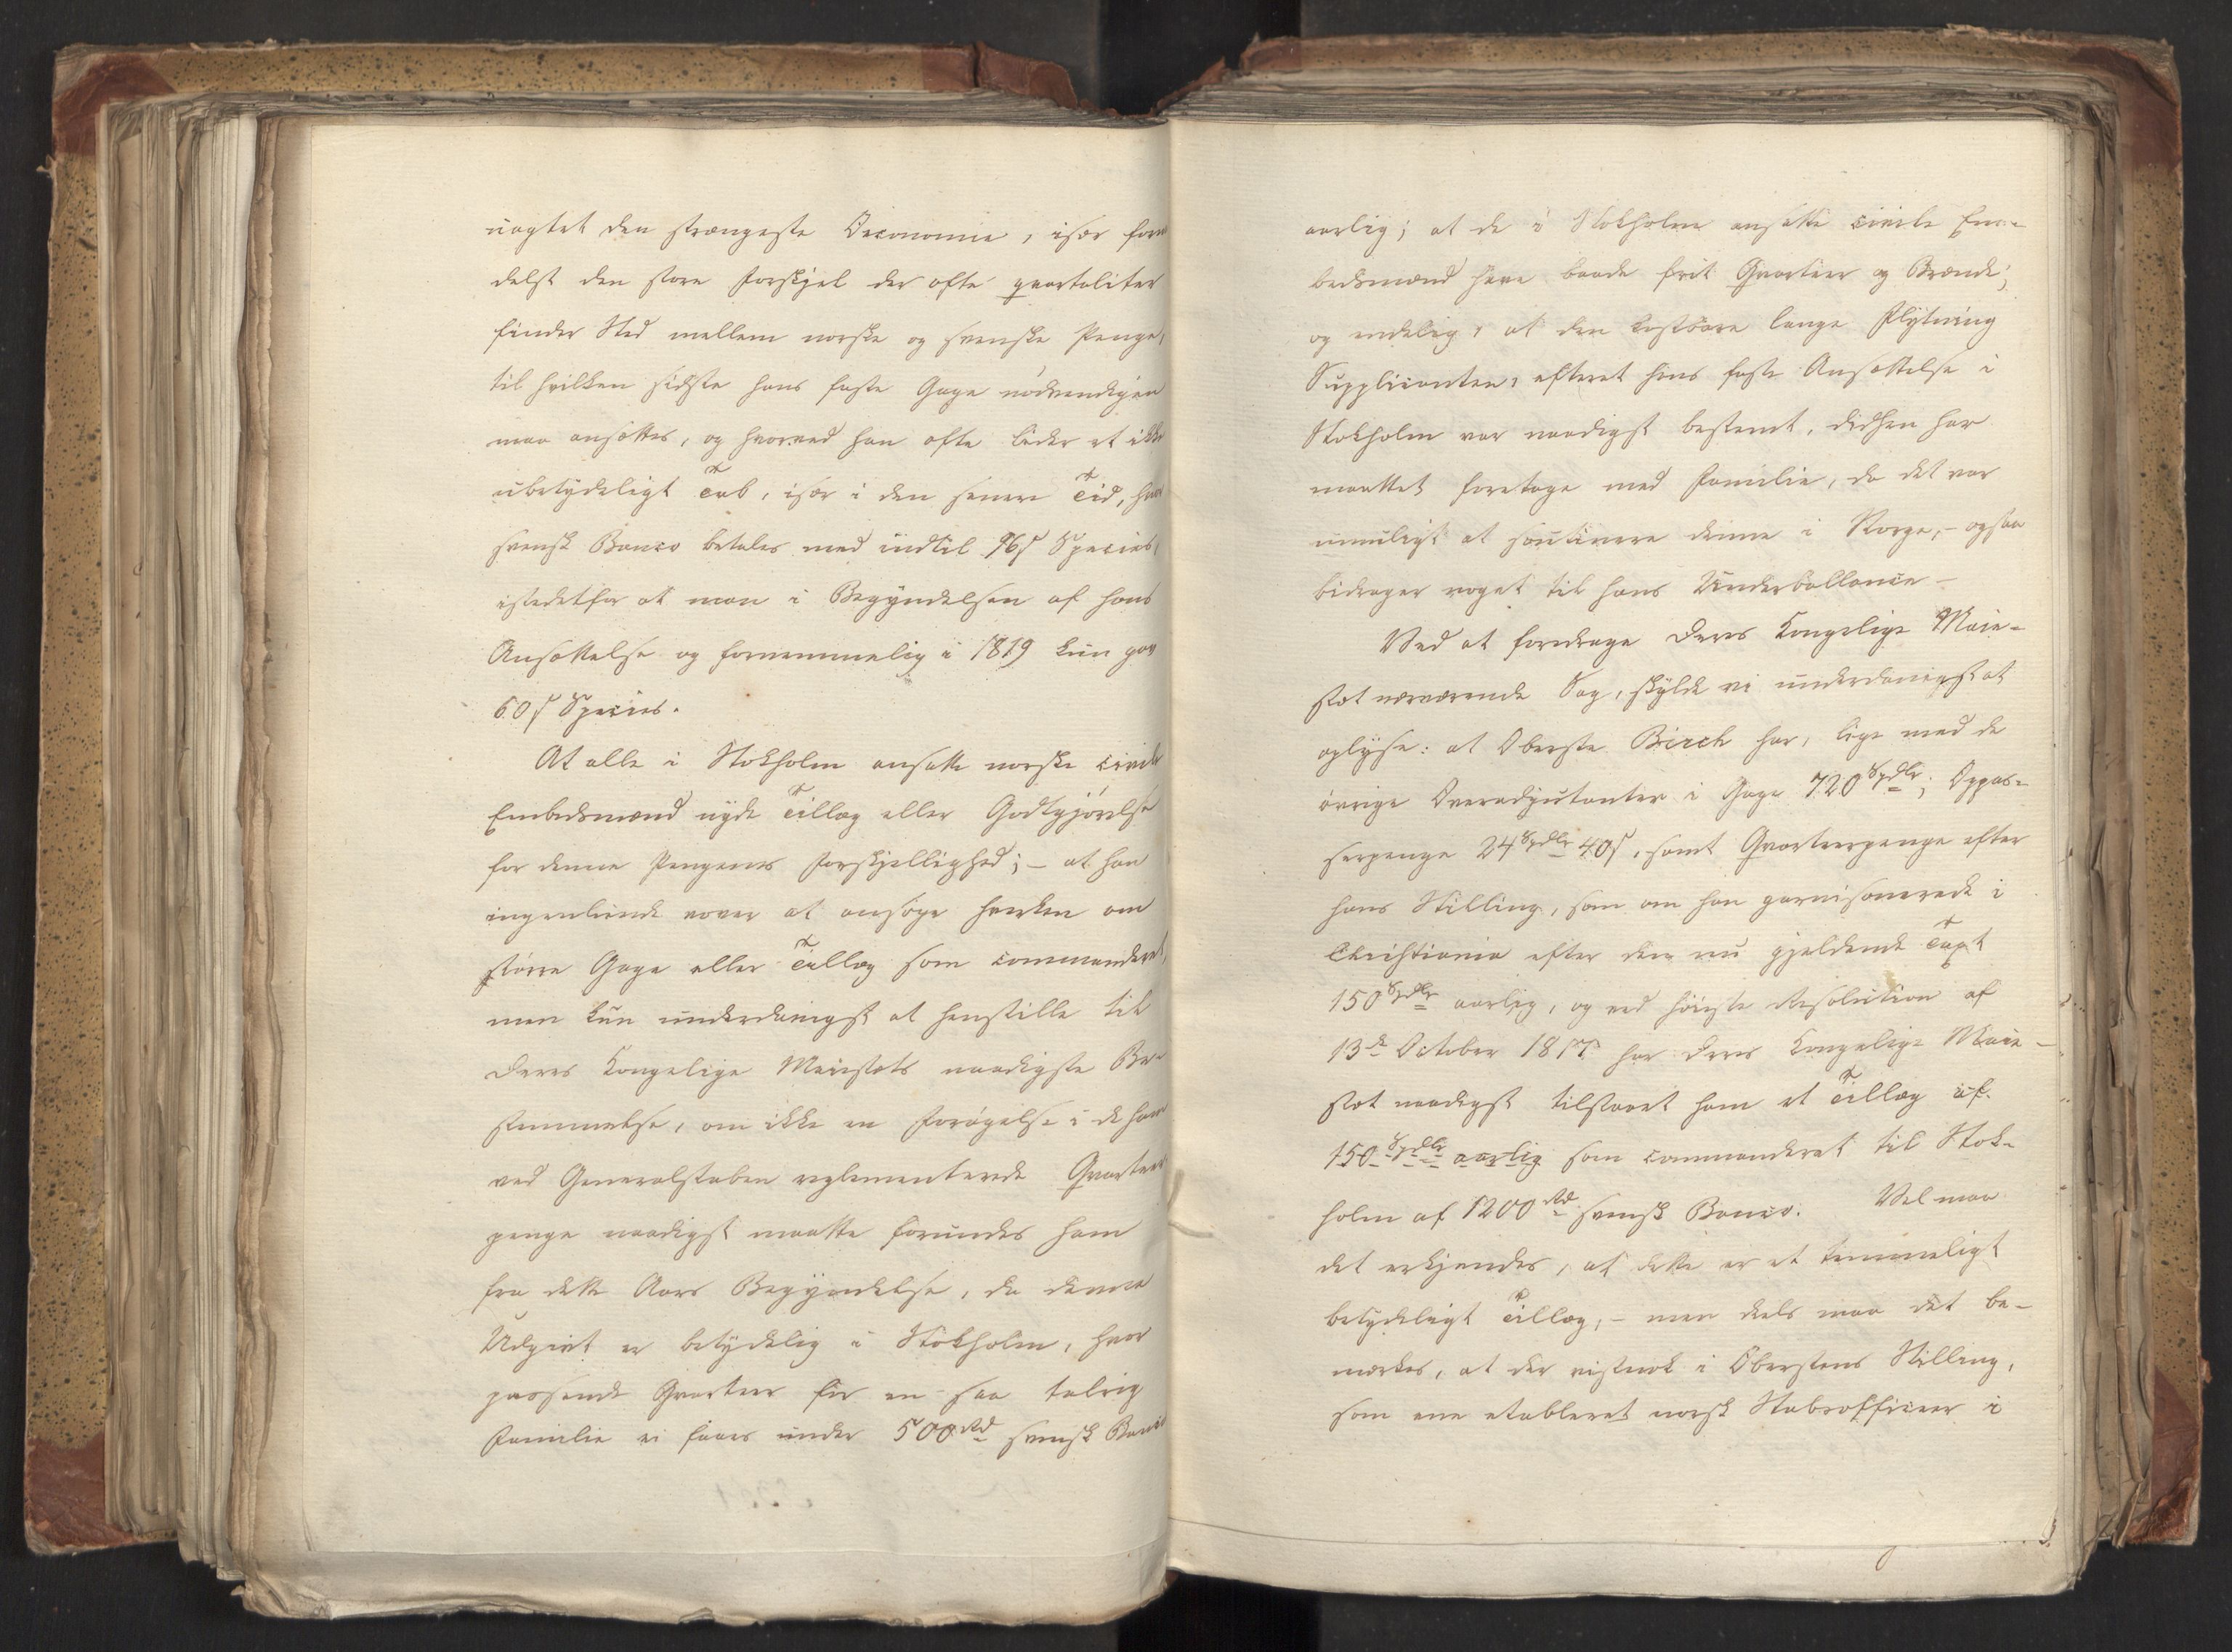 uagtet den strængeste Oeconomie, især formedelst
delst den store Forskjel der ofte qvartaliter
finder Sted mellem norske og svenske Penge,
til hvilken sidste hans faste Gage nödvendigen
maa ansættes, og hvorved han ofte lider et ikke
ubetydeligt Tab, især i den senere Tid, hvor
svensk Banco betales med indtil 96 s Species,
istedetfor at man i Begyndelsen af hans
Ansættelse og fornemmelig i 1819 kun gav
60 s Species.
At alle i Stokholm ansatte norske civile
Embedsmænd nyde Tillæg eller Godtgjörelse
for denne Pengenes Forskjellighed; – at han
ingenlunde vover at ansöge hverken om
større Gage eller Tillæg som commanderet,
men kun underdanigst at henstille til
Deres Kongelige Majestæts naadigste Be-
stemmelse, om ikke en Forøgelse i de ham
ved Generalstaben reglementerede Qvarteer
penge naadigst maatte forundes ham
fra dette Aars Begyndelse, da denne
Udgivt er betydelig i Stokholm, hvor
passende Qvarteer for en saa talrig
Familie ei faaes under 500 Rd svensk Banco
aarlig; at de i Stokholm ansatte civile Em-
bedsmænd have baade frit Qvarteer og Brænde;
og endelig, at den kostbare lange Flytning
Supplicanten, efterat hans faste Ansættelse i
Stokholm var naadigst bestemt, didhen har
maattet foretage med Familie, da det var
umuligt at soutinere denne i Norge, – ogsaa
bidrager noget til hans Underballance –
Ved at foredrage Deres Kongelige Maje-
stæt nærværende Sag, skylde vi underdanigst at
oplyse: at Oberste Birch har, lige med de
övrige Overadjutanter i Gage 720 Spdlr; Oppas-
serpenge 24 Spdlr 40 s, samt Qvarteerpenge efter
hans Stilling, som om han garnisonerede i
Christiania efter den nu gjeldende Taxt
150 Spdlr aarlig, og ved höieste Resolution af
13de October 1817 har Deres Kongelige Maje-
stæt naadigst tilstaaet ham et Tillæg af
150 Spdlr aarlig som commanderet til Stok-
holm af 1200 Rd svensk Banco. Vel maa
det erkjendes, at dette er et temmeligt
betydeligt Tillæg, – men deels maa det be-
mærkes, at der vistnok i Oberstens Stilling,
som ene etableret norsk Stabsofficeer i